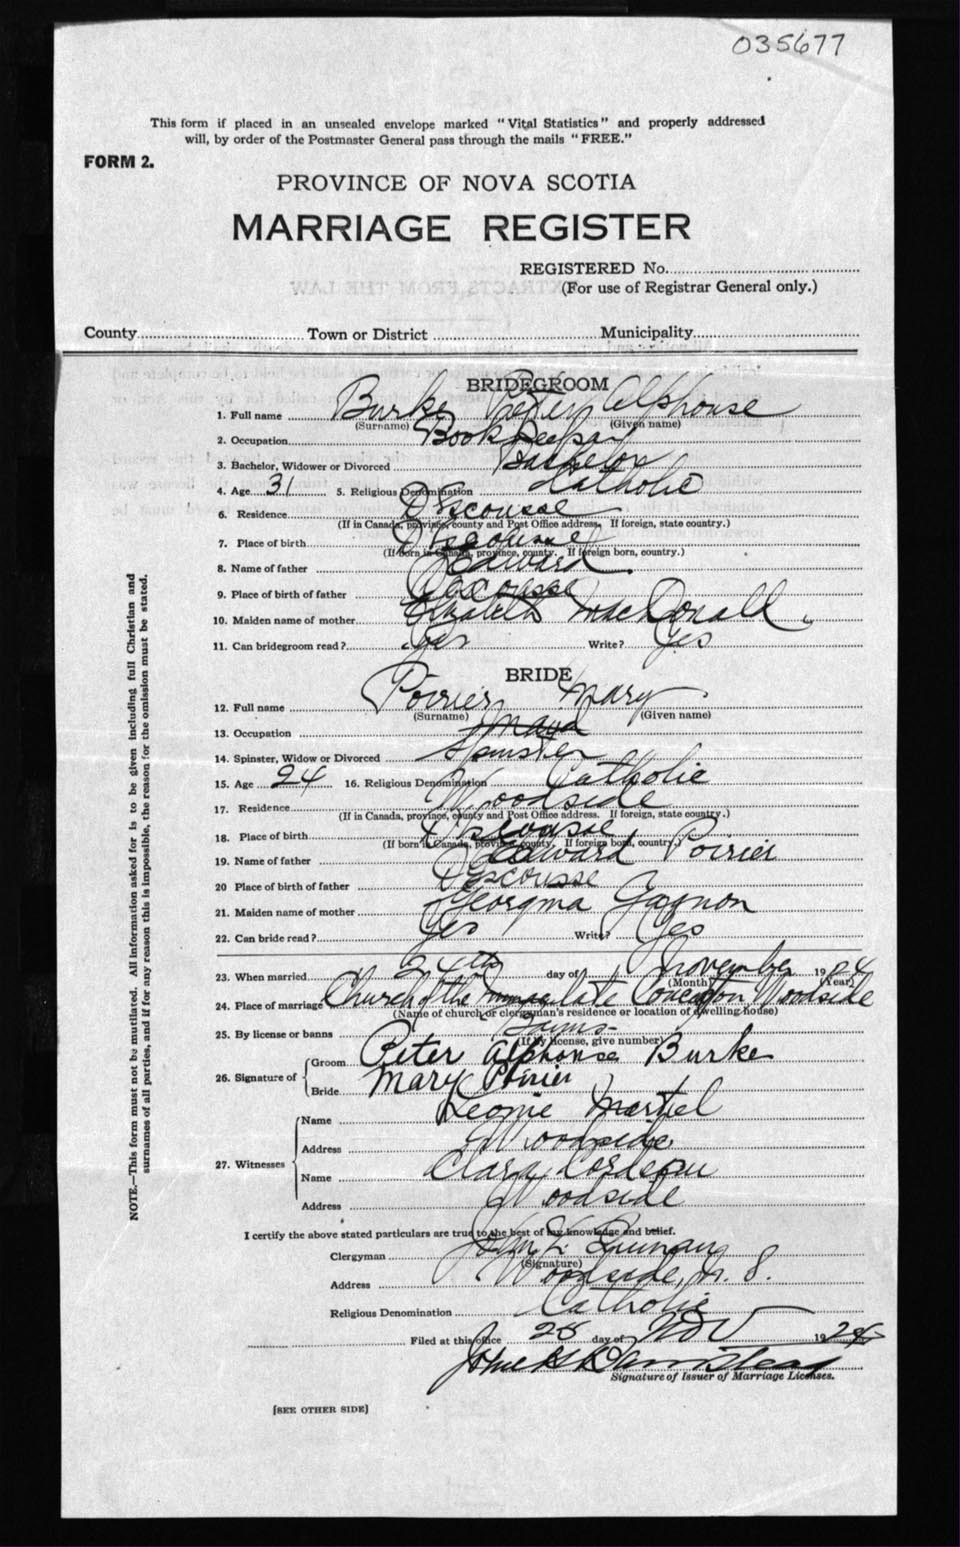 035677
This form if placed in an unsealed envelope marked "Vital Statistics" and properly addressed
will, by order of the Postmaster General pass through the mails "FREE."
FORM 2.
PROVINCE OF NOVA SCOTIA
MARRIAGE REGISTER
REGISTERED No.
(For use of Registrar General only.)
County Town or District Municipality
BRIDEGROOM
1. Full name Burke Peter Alphonse
(Surname) (Given name)
2. Occupation Book Keeper
3. Bachelor, Widower or Divorced Bachelor
4. Age 31 5. Religious Denomination Catholic
6. Residence D'Escousse
(If in Canada, province, county and Post Office address. If foreign, state country.)
7. Place of birth D'Escousse
(If born in Canada, province, county. If foreign born, country.)
8. Name of father Edward
9. Place of birth of father Descousse
10. Maiden name of mother Elizabeth MacDonall
11. Can bridegroom read? Yes Write? Yes
BRIDE
12. Full name Poirier Mary
(Surname) (Given name)
13. Occupation Mayd
14. Spinster, Widow or Divorced Spinster
15. Age 24 16. Religious Denomination Catholic
17. Residence Woodside
(If in Canada, province, county and Post Office address. If foreign, state country.)
18. Place of birth D'Escousse
(If born in Canada, province, county. If foreign born, country.)
19. Name of father Edward Poirier
20 Place of birth of father D'Escousse
21. Maiden name of mother Georgina Gagnon
22. Can bride read? Yes Write? Yes
23. When married 24th day of November 1924
(Month) (Year)
24. Place of marriage Church of the Immaculate Conception Woodside
(Name of church or clergyman's residence or location of dwelling house)
25. By license or banns
(If by license, give number)
26. Signature of Groom Peter Alphonse Burke
Bride Mary Poirier
27. Witnesses Name Leonie Martel
Address Woodside
Name Clara
Address Woodside
I certify the above stated particulars are true to the best of my knowledge and belief.
Clergyman John
(Signature)
Address Woodside, N. S.
Religious Denomination Catholic
Filed at this office 28 day of Nov 1924
John
Signature of Issuer of Marriage Licenses.
[SEE OTHER SIDE]
NOTE.—This form must not be mutilated. All information asked for is to be given including full Christian and
surnames of all parties, and if for any reason this is impossible, the reason for the omission must be stated.